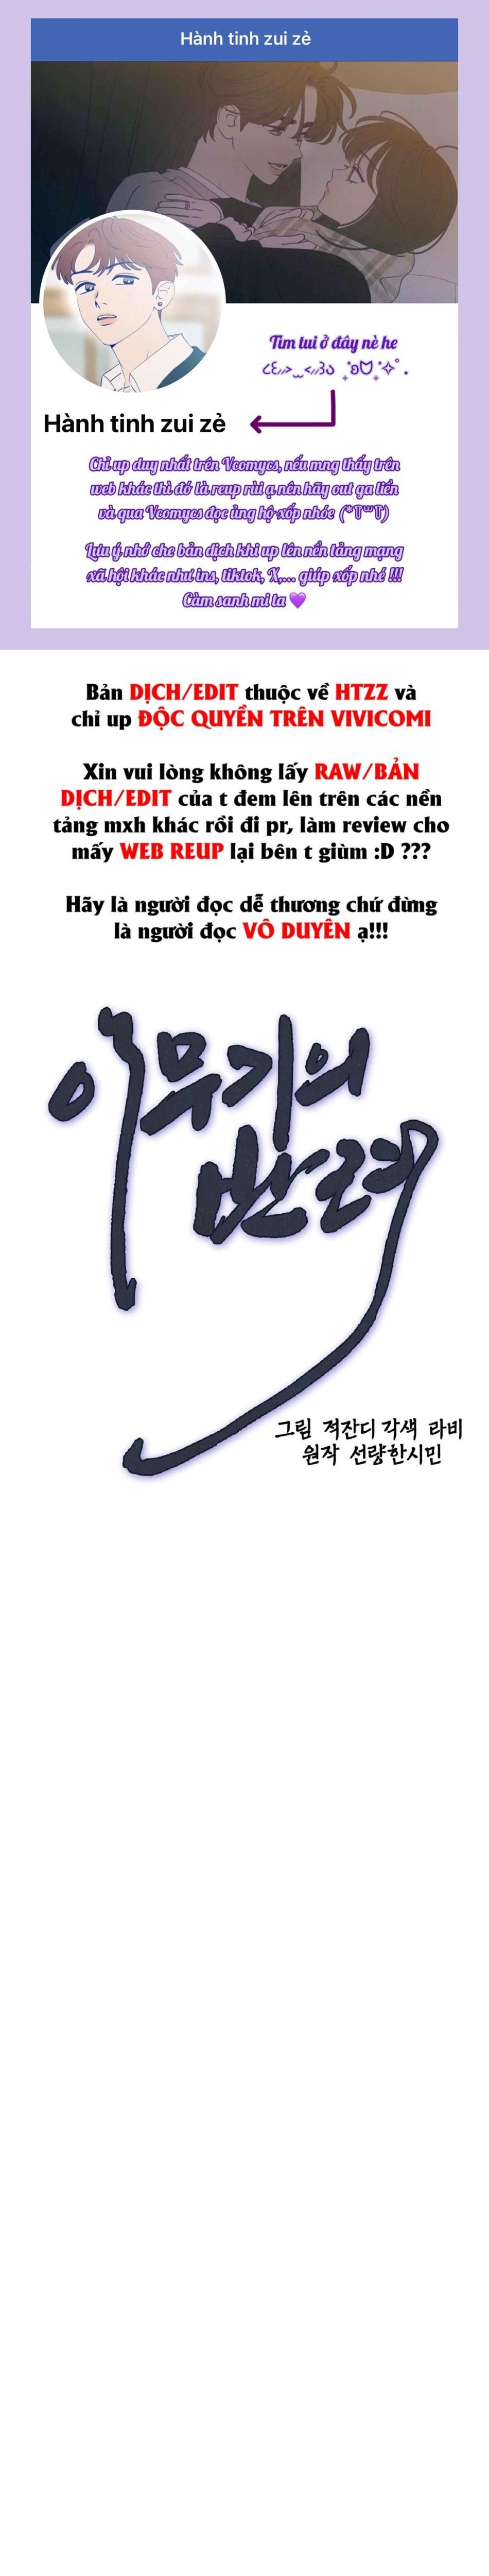 Hành tinh zui zẻ
Tìm tui ở đây nè he
Hành tinh zui zẻ
Chỉ up duy nhất trên Vcomycs, nếu mng thấy trên
web khác thì đó là reup rùi ạ nên hãy out ga liền
và qua Vcomycs đọc ủng hộ xốp nhóe
Lưu ý nhớ che bản dịch khi up lên nền tảng mạng
xã hội khác như ins, tiktok, X,... giúp xốp nhé !!!
Cảm sanh mi ta 💜
Bản DỊCH/EDIT thuộc về HTZZ và
chỉ up ĐỘC QUYỀN TRÊN VIVICOMI
Xin vui lòng không lấy RAW/BẢN
DỊCH/EDIT của t đem lên trên các nền
tảng mxh khác rồi đi pr, làm review cho
mấy WEB REUP lại bên t giùm :D ???
Hãy là người đọc dễ thương chứ đừng
là người đọc VÔ DUYÊN ạ!!!
이무기의
반려
그림 적잔디 각색 라비
원작 선량한시민